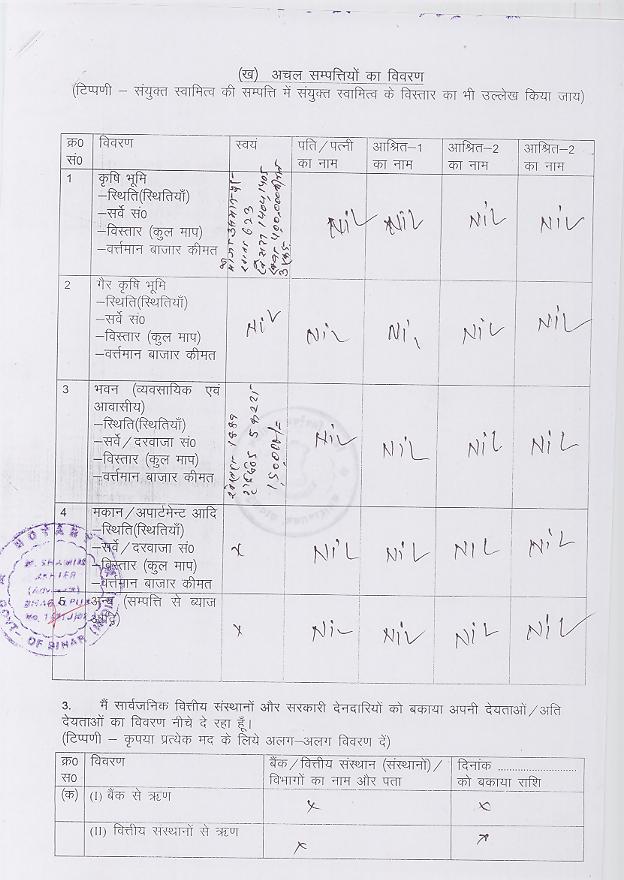 (ख) अचल सम्पत्तियों का विवरण
(टिप्पणी – संयुक्त स्वामित्व की सम्पत्ति में संयुक्त स्वामित्व के विस्तार का भी उल्लेख किया जाय)
क्र0 सं0 विवरण स्वयं पति / पत्नी का नाम आश्रित–1 का नाम आश्रित–2 का नाम आश्रित–2 का नाम
1 कृषि भूमि
–स्थिति(स्थितियाँ)
–सर्वे सं0
–विस्तार (कुल माप)
–वर्त्तमान बाजार कीमत
623
1404, 1405
Nil Nil Nil Nil
2 गैर कृषि भूमि
–स्थिति(स्थितियाँ)
–सर्वे सं0
–विस्तार (कुल माप)
–वर्त्तमान बाजार कीमत
Nil Nil Nil Nil Nil
3 भवन (व्यवसायिक एवं
आवासीय)
–स्थिति(स्थितियाँ)
–सर्वे / दरवाजा सं0
–विस्तार (कुल माप)
–वर्त्तमान बाजार कीमत
Nil Nil Nil Nil
4 मकान / अपार्टमेन्ट आदि
–स्थिति(स्थितियाँ)
–सर्वे / दरवाजा सं0
–विस्तार (कुल माप)
–वर्त्तमान बाजार कीमत
x Nil Nil Nil Nil
5 अन्य (सम्पत्ति से ब्याज
x Nil Nil Nil Nil
NOTARY
GOVT- OF BIHAR
3. मैं सार्वजनिक वित्तीय संस्थानों और सरकारी देनदारियों को बकाया अपनी देयताओं / अति
देयताओं का विवरण नीचे दे रहा हूँ।
(टिप्पणी – कृपया प्रत्येक मद के लिये अलग–अलग विवरण दें)
क्र0 स0 विवरण बैंक / वित्तीय संस्थान (संस्थानों) / विभागों का नाम और पता दिनांक ........................ को बकाया राशि
(क) (I) बैंक से ऋण x x
(II) वित्तीय संस्थानों से ऋण x x